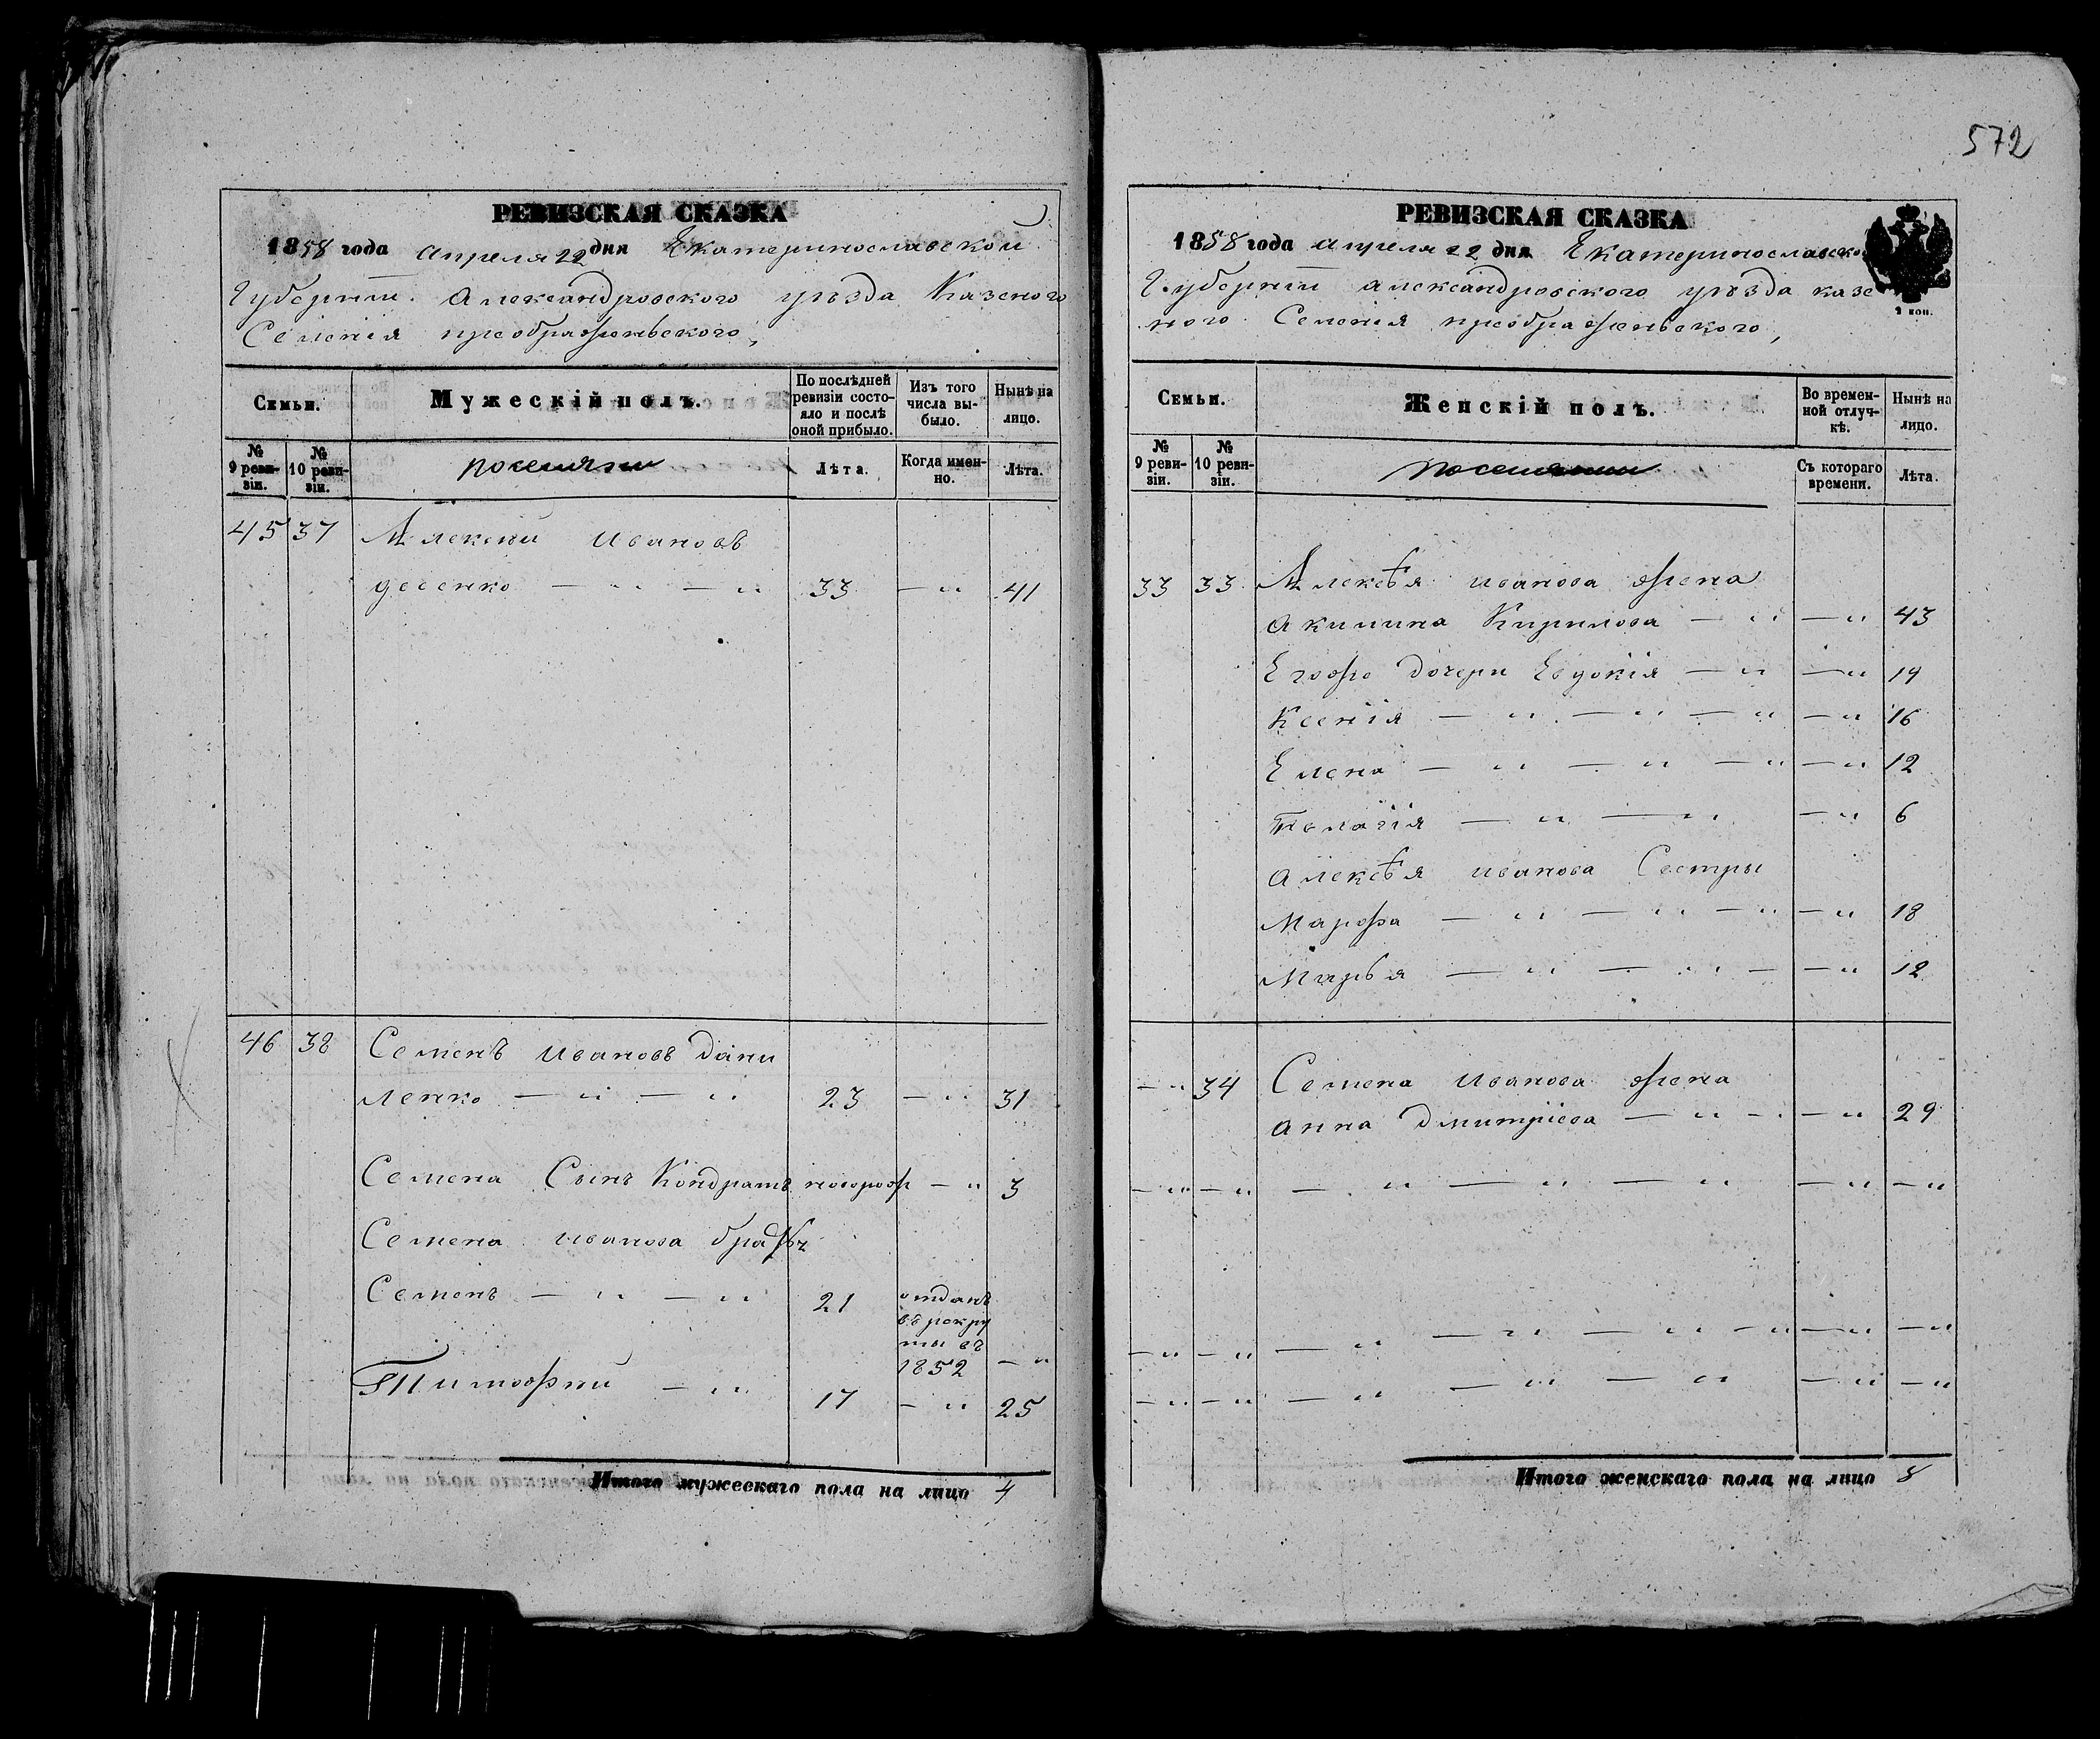 572
РЕВИЗСКАЯ СКАЗКА
1858 года апреля 22 дня Екатеринославской
Губерніи Александровского уѣзда Казеного
Селенія преображенского,
Семьи.
Мужескій полъ.
По послѣдней ревизіи состояло и послѣ оной прибыло.
Изъ того числа выбыло.
Нынѣ на лицо.
№ 9 ревизіи.
№ 10 ревизіи.
поселяни
Лѣта.
Когда именно.
Лѣта.
45 37 Алексѣй Ивановъ
— " — " 33 — " 41
46 38 Семенъ Ивановъ Дани
ленко — " — " 23 — " 31
Семена Сынъ Кондратъ новорож — " 3
Семена иванова братья
Семенъ — " — " 21 отданъ
въ рекру
ты въ
1852 — "
Тимофѣй — " 17 — " 25
Итого мужескаго пола на лицо 4
РЕВИЗСКАЯ СКАЗКА
1858 года апреля 22 дня Екатеринославско
Губерніи александровского уѣзда казе
ного Селенія преображенского,
2 коп.
Семьи.
Женскій полъ.
Во временной отлучкѣ.
Нынѣ на лицо.
№ 9 ревизіи.
№ 10 ревизіи.
Съ котораго времени.
Лѣта.
33 33 Алексѣя иванова жена
акилина Кирилова — " — " 43
Егожо дочери Евдокія — " — " 19
Ксенія — " — " — " — " 16
Елена — " — " — " — " 12
Пелагія — " — " — " 6
алексѣя иванова Сестры
Марфа — " — " — " — " 18
Марья — " — " — — " 12
— " 34 Семена Иванова жена
анна Дмитріева — " — " — " 29
— " — " — " — " — " — " — "
— " — " — " — " — " — " — " — "
— " — " — " — " — " — " — "
Итого женскаго пола на лицо 8